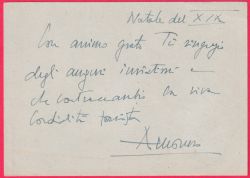 Natale del XIX
Con animo grato Ti ringrazio
degli auguri inviatimi e
che contraccambio con viva
cordialità